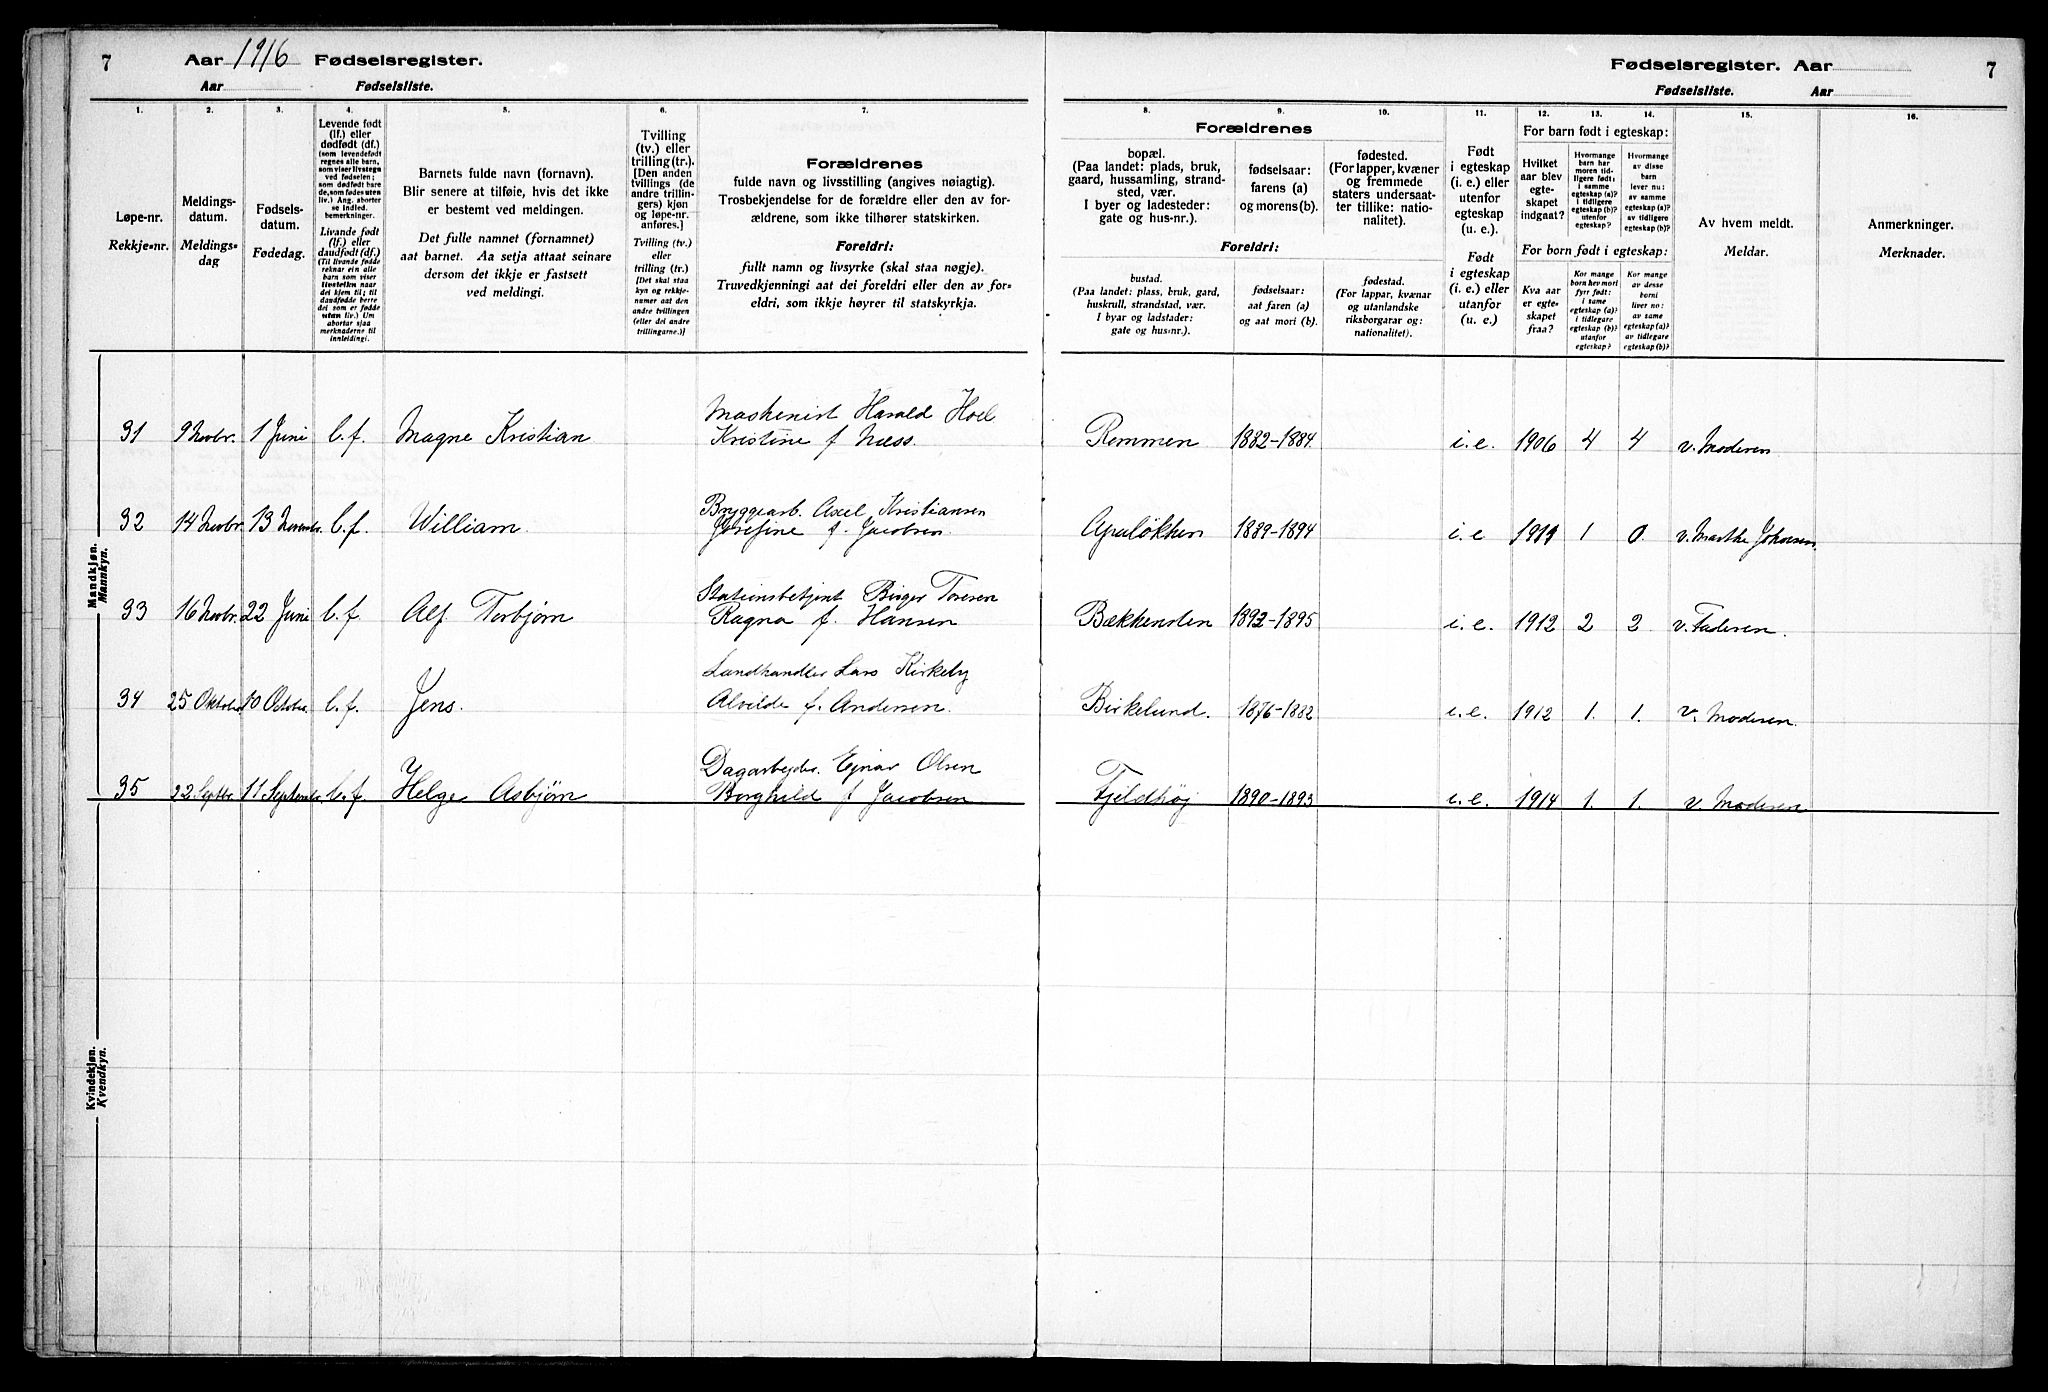 7
Aar 1916 Fødselsregister.
Aar Fødselsliste.
Fødselsregister. Aar
7
Fødselsliste. Aar
1.
Løpe-nr.
Rekkje-nr.
2.
Meldings-
datum.
Meldings-
dag
3.
Fødsels-
datum.
Fødedag.
4.
Levende født
(lf.) eller
dødfødt (df.)
(som levendefødt
regnes alle barn,
som viser livstegn
ved fødselen;
som dødfødt bare
de, som fødes uten
liv.) Ang. aborter
se indled.
bemerkninger.
Livande født
(lf.) eller
daudfødt (df.)
(Til livande fødde
reknar ein alle
barn som viser
livsteikn naar
dei kjem til; til
daudfødde berre
dei som er fødde
utan liv.) Um
abortar sjaa
merknaderne til
innleidingi.
5.
Barnets fulde navn (fornavn).
Blir senere at tilføie, hvis det ikke
er bestemt ved meldingen.
Det fulle namnet (fornamnet)
aat barnet. Aa setja attaat seinare
dersom det ikkje er fastsett
ved meldingi.
6.
Tvilling
(tv.) eller
trilling (tr.).
[Den anden
tvillings (de
andre trillin-
gers) kjøn
og løpe-nr.
anføres.]
Tvilling (tv.)
eller
trilling (tr.)
[Det skal staa
kyn og rekkje-
numer aat den
andre tvillingen
(eller dei andre
trillingarne.)]
7.
Forældrenes
fulde navn og livsstilling (angives nøiagtig).
Trosbekjendelse for de forældre eller den av for-
ældrene, som ikke tilhører statskirken.
Foreldri:
fullt namn og livsyrke (skal staa nøgje).
Truvedkjenningi aat dei foreldri eller den av for-
eldri, som ikkje høyrer til statskyrkja.
Forældrenes
8.
bopæl.
(Paa landet: plads, bruk,
gaard, hussamling, strand-
sted, vær.
I byer og ladesteder:
gate og hus-nr.).
9.
fødselsaar:
farens (a)
og morens (b).
10.
fødested.
(For lapper, kvæner
og fremmede
staters undersaat-
ter tillike: natio-
nalitet).
Foreldri:
bustad.
(Paa landet: plass, bruk, gard,
huskrull, strandstad, vær.
I byar og ladstader:
gate og hus-nr.).
fødselsaar:
aat faren (a)
og aat mori (b).
fødestad.
(For lappar, kvænar
og utanlandske
riksborgarar og:
nationalitet).
11.
Født
i egteskap
(i. e.) eller
utenfor
egteskap
(u. e.).
Født
i egteskap
(i. e.) eller
utanfor
(u. e.).
12. 13. 14.
For barn født i egteskap:
Hvilket
aar blev
egte-
skapet
indgaat?
Hvormange
barn har
moren tid-
ligere født:
i samme
egteskap (a)?
i tidligere
egteskap (b)?
utenfor
egteskap?
Hvormange
av disse
barn
lever nu:
av samme
egteskap (a)?
av tidligere
egteskap (b)?
For born født i egteskap:
Kva aar
er egte-
skapet
fraa?
Kor mange
born hev mori
fyrr født:
i same
egteskap (a)?
i tidlegare
egteskap (b)?
utanfor
egteskap?
Kor mange
av desse
borni
liver no:
av same
egteskap (a)?
av tidlegare
egteskap (b)?
15.
Av hvem meldt.
Meldar.
16.
Anmerkninger.
Merknader.
Mandkjøn.
Mannkyn.
31 9 Novbr. 1 Juni l.f. Magne Kristian Maskenist Harald Hoel
Kristine f Næss. Remmen 1882-1884 i.e. 1906 4 4 v. Moderen
32 14 Novbr. 13 Novembr. l.f. William. Bryggearb. Axel Kristiansen
Josefine f. Jacobsen Apaløkken 1889-1894 i.e 1 0. v. Marthe Johansen
33 16 Novbr. 22 Juni l.f. Alf Torbjørn Stationsbetjent Birger Toresen
Ragna f. Hansen Bækkensten 1892-1895 i.e. 1912 2 2 v. Faderen.
34 25 Oktober 10 Octobr. l.f. Jens. Landhandler Lars Kirkeby
Alvilde f. Andersen. Birkelund. 1876-1882 i.e. 1912 1. 1. v. Moderen.
35 22 Septbr. 11 September l.f. Helge Asbjørn Dagarbejder. Ejnar Olsen
Borghild f Jacobsen Fjeldhøj 1890-1893 i.e. 1914 1. 1. v. Moderen
Kvindekjøn.
Kvendkyn.